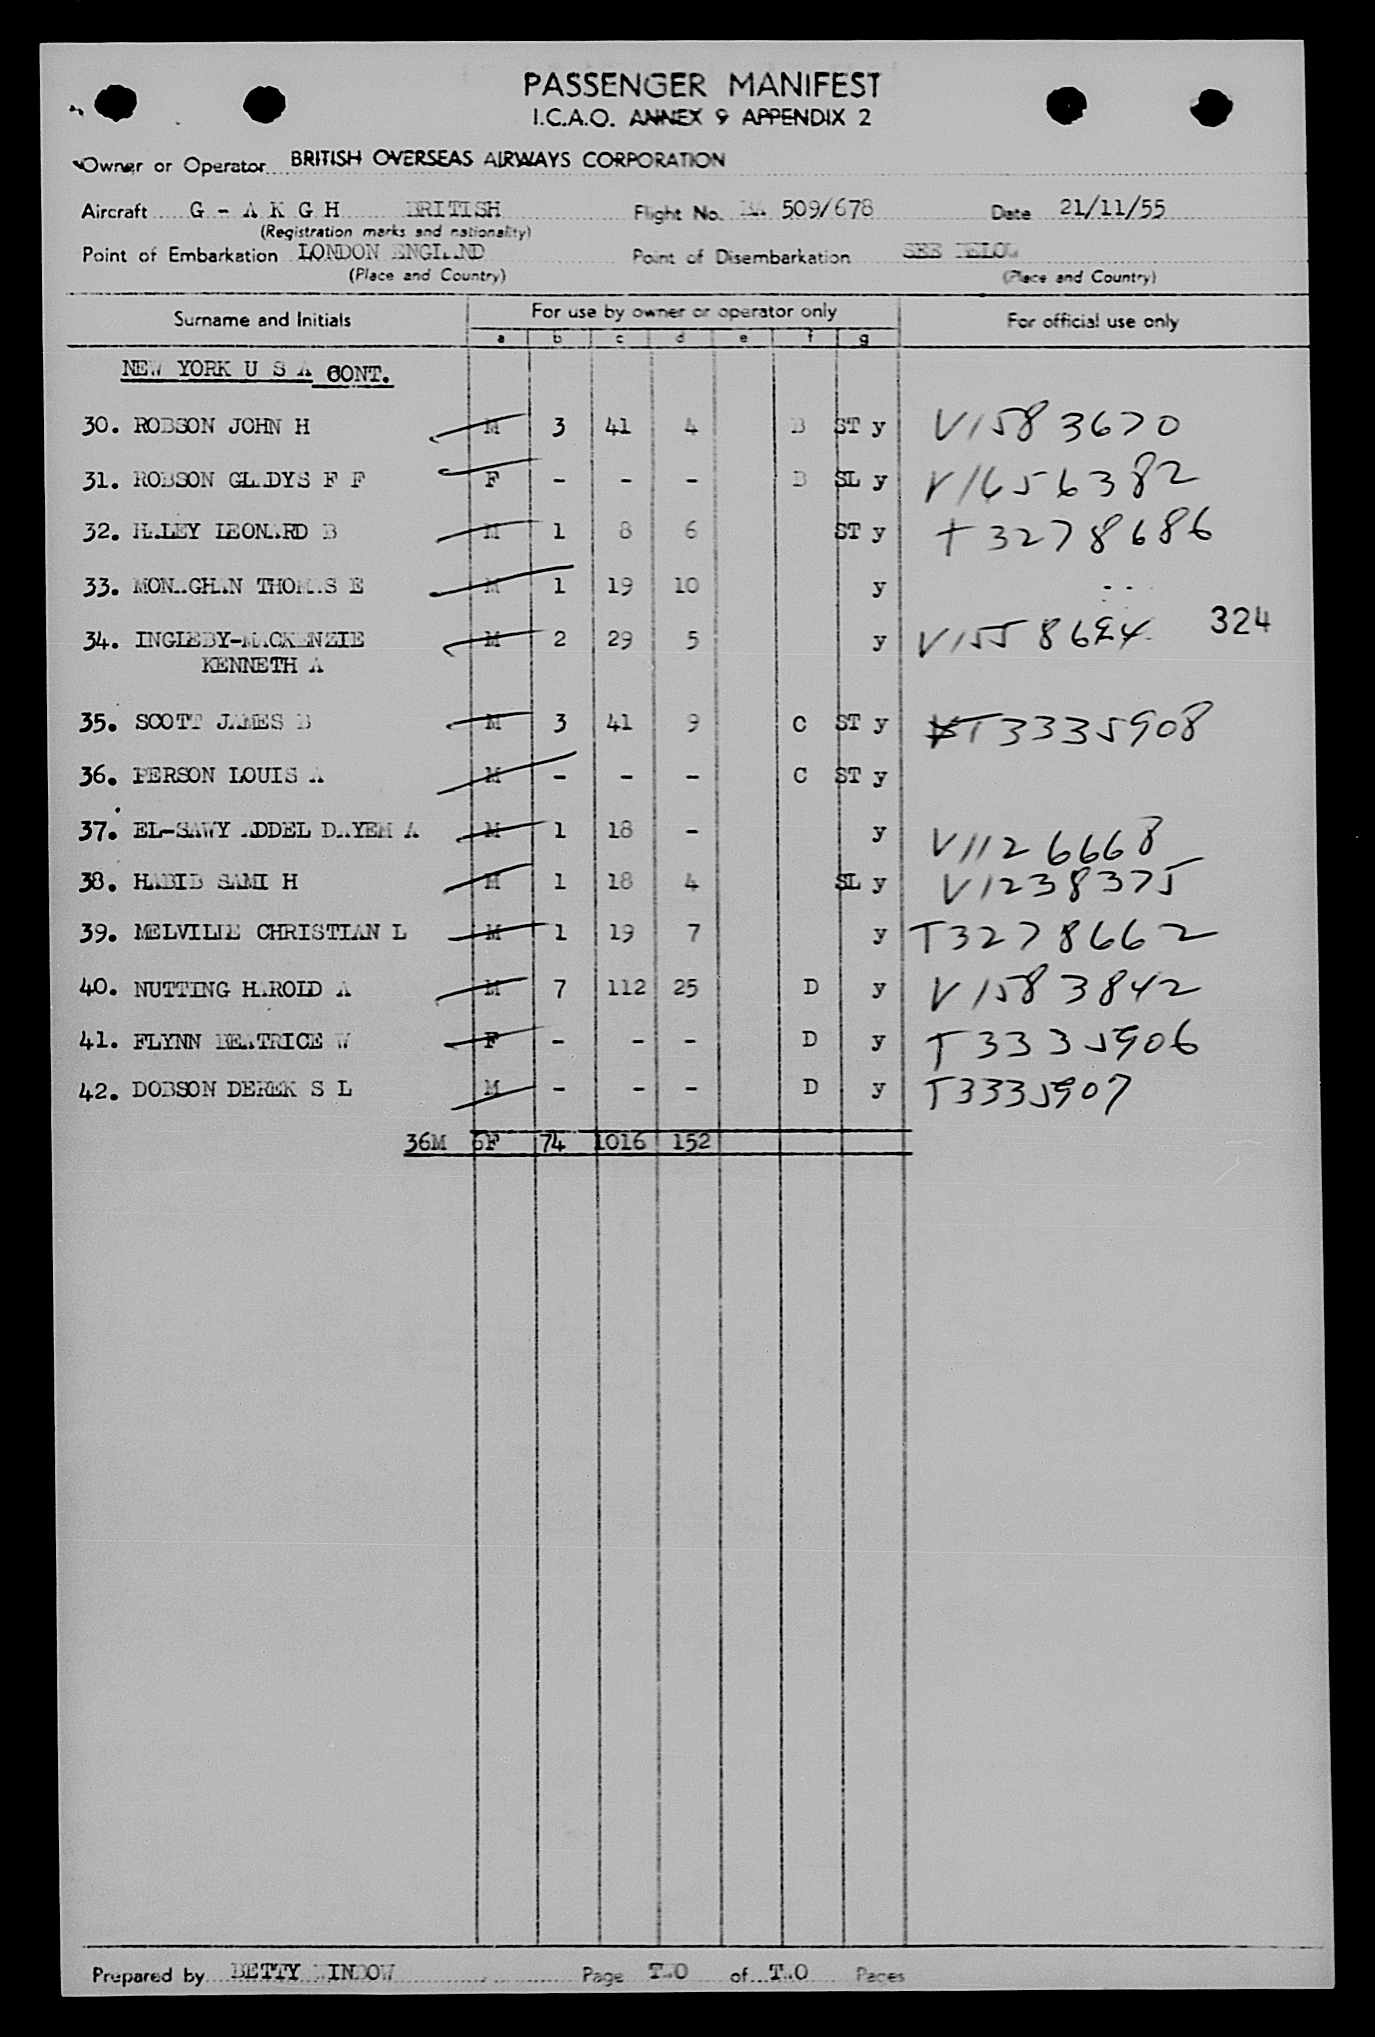 PASSENGER MANIFEST
I.C.A.O. ANNEX 9 APPENDIX 2
Owner or Operator BRITISH OVERSEAS AIRWAYS CORPORATION
Aircraft G - A K G H BRITISH Flight No. BA 509/678 Date 21/11/55
(Registration marks and nationality)
Point of Embarkation LONDON ENGLAND Point of Disembarkation SEE BELOW
(Place and Country) (Place and Country)
Surname and Initials For use by owner or operator only For official use only
a b c d e f g
NEW YORK U S A CONT.
30. ROBSON JOHN H M 3 41 4 B ST y V1583670
31. ROBSON GLADYS F F F - - - B SL y V1656382
32. HALEY LEONARD B M 1 8 6 ST y T3278686
33. MONAGHAN THOMAS E M 1 19 10 y
34. INGLEBY-MACKENZIE M 2 29 5 y V1558624 324
KENNETH A
35. SCOTT JAMES B M 3 41 9 C ST y T3335908
36. PERSON LOUIS A M - - - C ST y
37. EL-SAWY ABDEL DAYEM A M 1 18 - y V1126668
38. HABIB SAMI H M 1 18 4 SL y V1238375
39. MELVILLE CHRISTIAN L M 1 19 7 y T3278662
40. NUTTING HAROLD A M 7 112 25 D y V1583842
41. FLYNN BEATRICE W F - - - D y T3335906
42. DOBSON DEREK S L M - - - D y T3335907
36M 6F 74 1016 152
Prepared by BETTY WINDOW Page TWO of TWO Pages